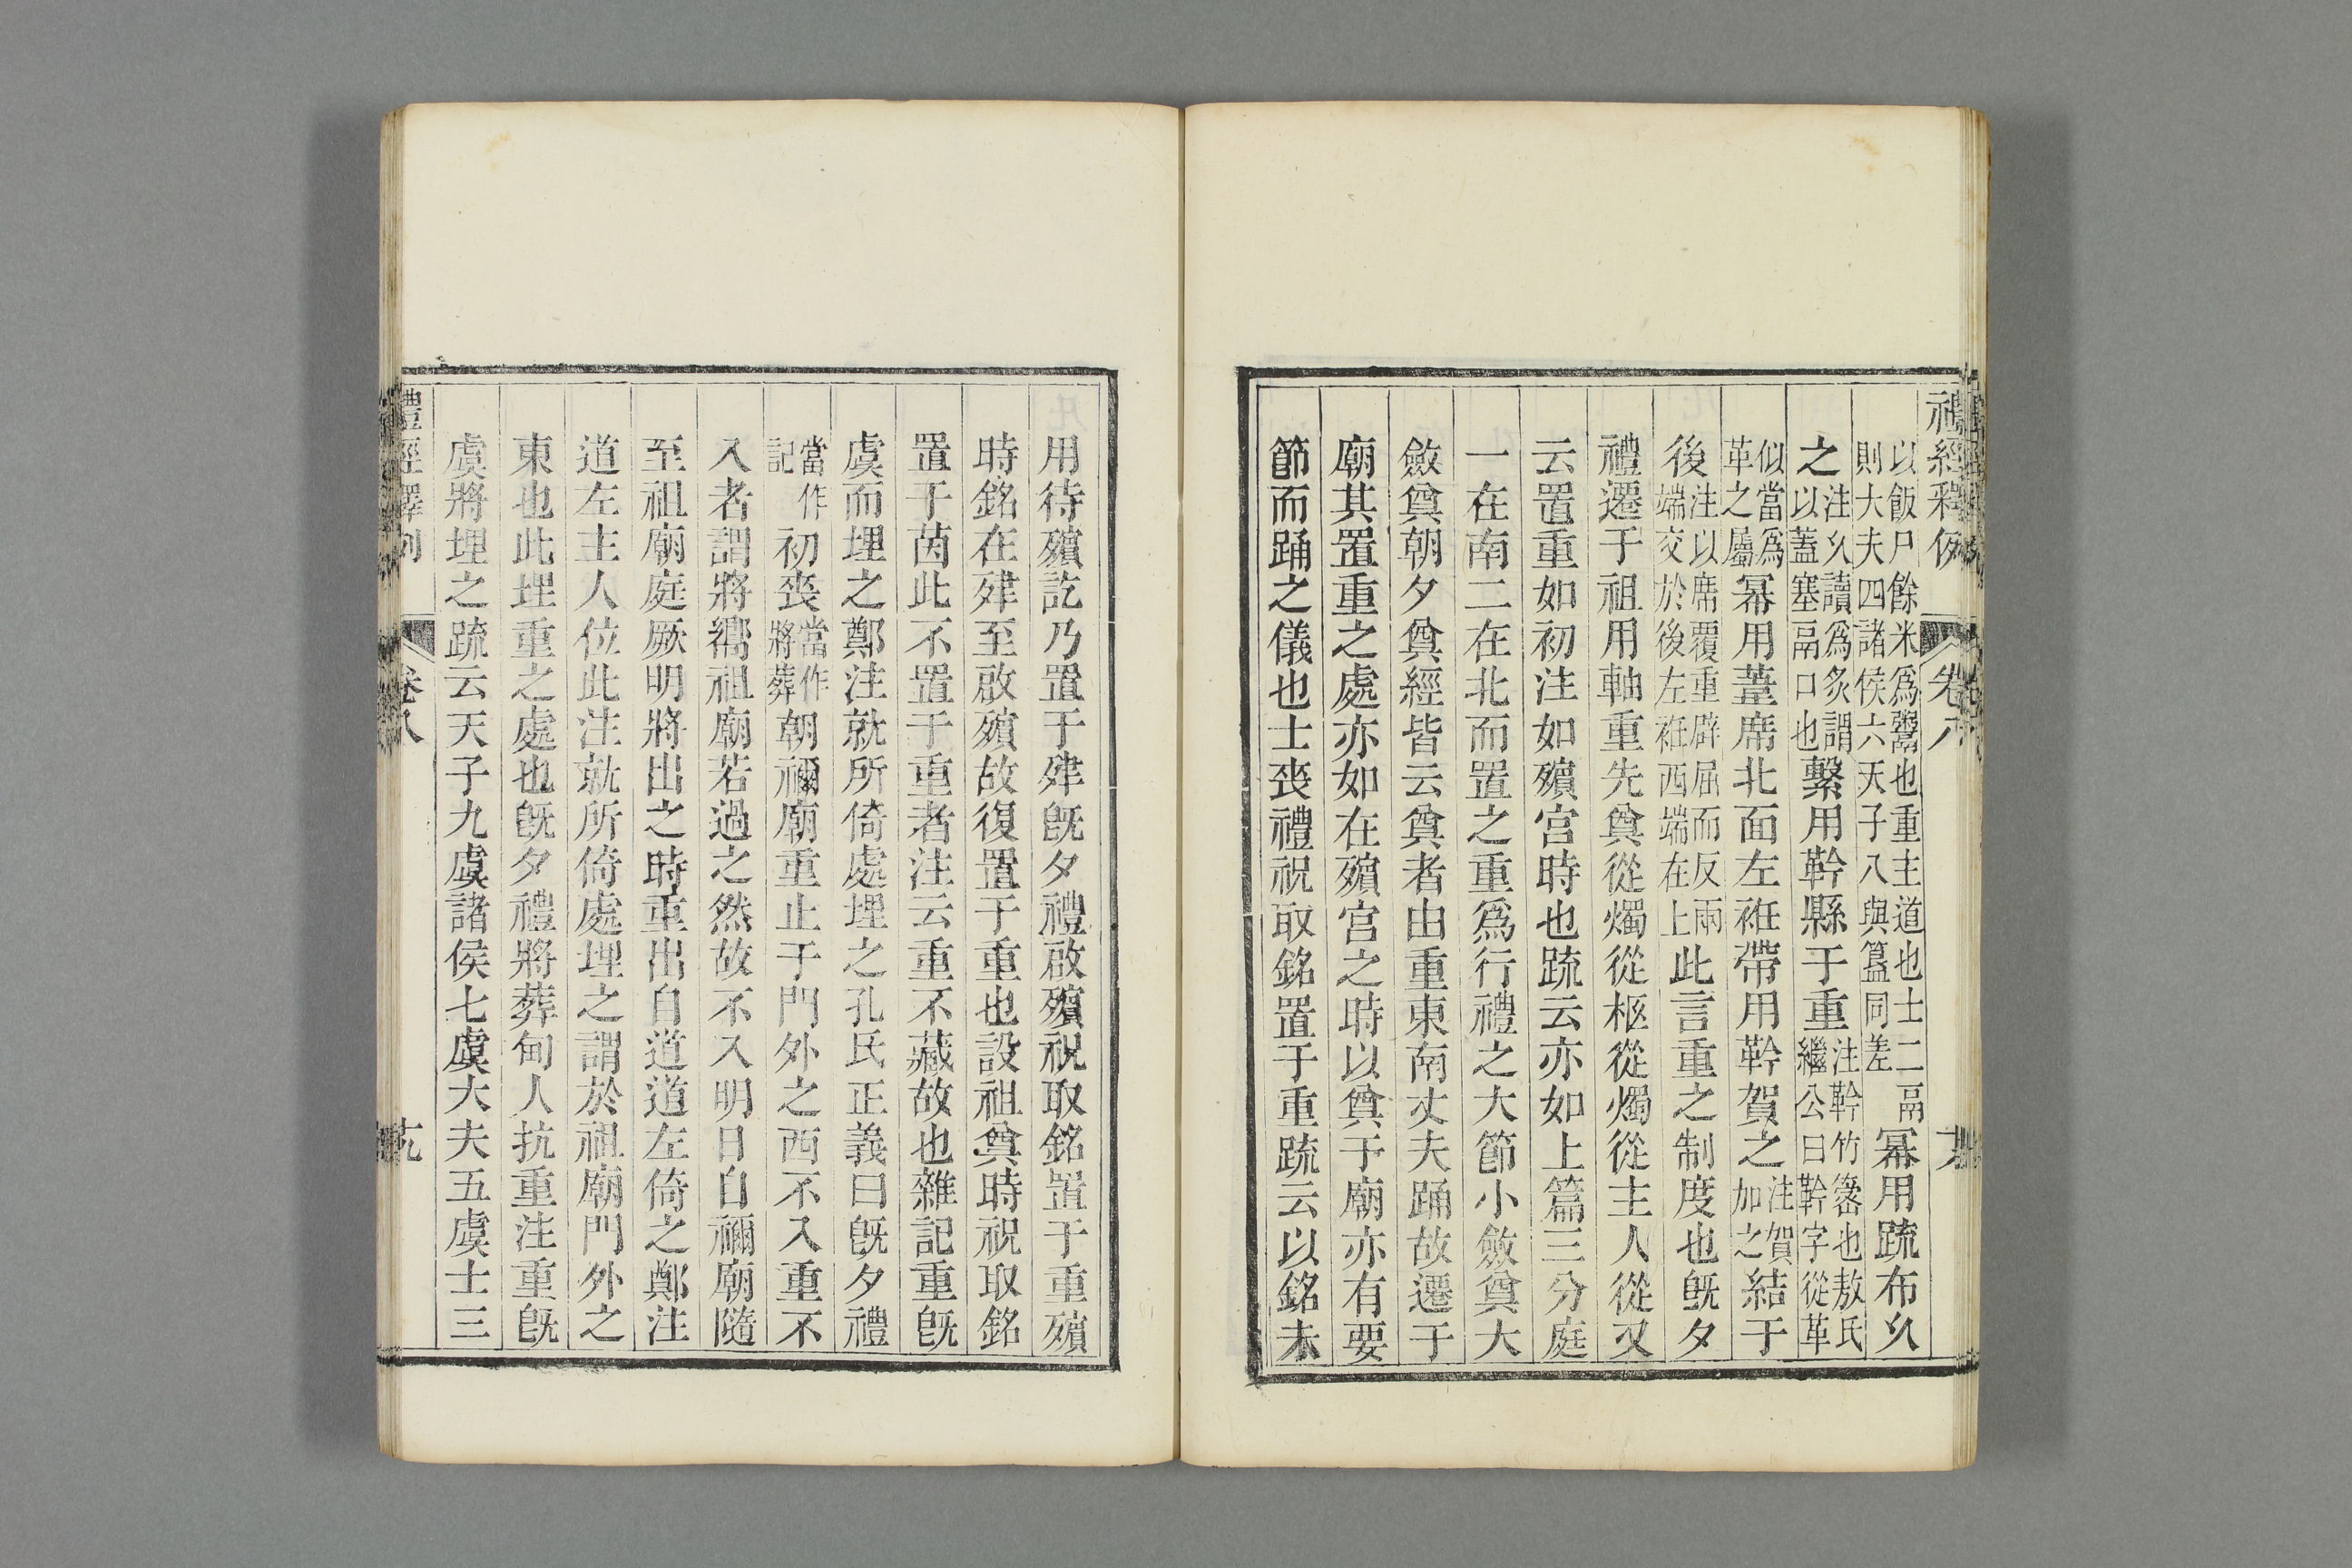 禮經釋例 卷八
以飯尸餘米爲鬻也重主道也士二鬲則大夫四諸侯六天子八與簋同差冪用疏布久
之注久讀爲炙謂以蓋塞鬲口也繫用靲縣于重注靲竹䈼也敖氏繼公曰靲字從革
似當爲革之屬冪用葦席北面左衽帶用靲賀之注賀加之結于
後注以席覆重辟屈而反兩端交於後左衽西端在上此言重之制度也旣夕
禮遷于祖用軸重先奠從燭從柩從燭從主人從又
云置重如初注如殯宮時也疏云亦如上篇三分庭
一在南二在北而置之重爲行禮之大節小斂奠大
斂奠朝夕奠經皆云奠者由重東南丈夫踊故遷于
廟其置重之處亦如在殯宮之時以奠于廟亦有要
節而踊之儀也士喪禮祝取銘置于重疏云以銘未
用待殯訖乃置于肂旣夕禮啟殯祝取銘置于重殯
時銘在肂至啟殯故復置于重也設祖奠時祝取銘
置于茵此不置于重者注云重不藏故也雜記重旣
虞而埋之鄭注就所倚處埋之孔氏正義曰旣夕禮
當作記初喪當作將葬朝禰廟重止于門外之西不入重不
入者謂將嚮祖廟若過之然故不入明日自禰廟隨
至祖廟庭厥明將出之時重出自道道左倚之鄭注
道左主人位此注就所倚處埋之謂於祖廟門外之
東也此埋重之處也旣夕禮將葬甸人抗重注重旣
虞將埋之疏云天子九虞諸侯七虞大夫五虞士三
禮經釋例 卷八